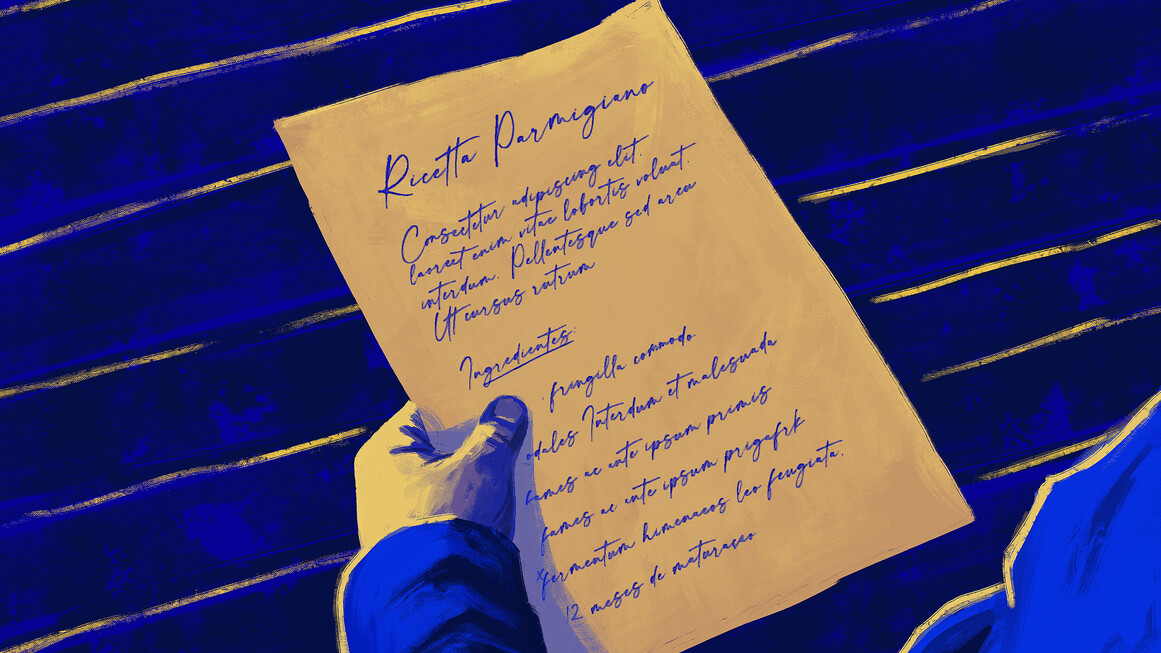 Ricetta Parmigiano
Consectetur adipiscing elit.
laoreet enim vitae lobortis volutpat.
interdum. Pellentesque sed arcu
Ut cursus rutrum
Ingredientes:
fringilla commodo
odales Interdum et malesuada
fames ac ante ipsum primis
fames ac ante ipsum prigafrk
fermentum himenaeos leo feugiata.
12 meses de maturaçao